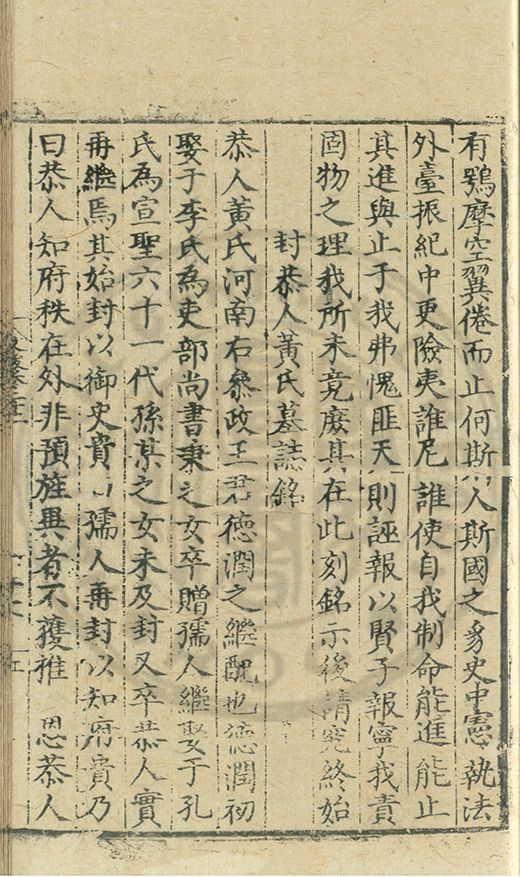 有鶚摩空翼倦而止何斯人斯國之豸史中憲執法
外臺振紀中更險夷誰尼誰使自我制命能進能止
其進與止于我弗愧匪天則誣報以賢子報寧我責
固物之理我所未竟廢其在此刻銘示後請究終始
封恭人黃氏墓誌銘
恭人黃氏河南右叅政王君德潤之繼配也德潤初
娶于李氏為吏部尚書秉之女卒贈孺人繼娶于孔
氏為宣聖六十一代孫某之女未及封又卒恭人實
再繼焉其始封以御史貴曰孺人再封以知府貴乃
曰恭人知府秩在外非預旌異者不獲推 恩恭人